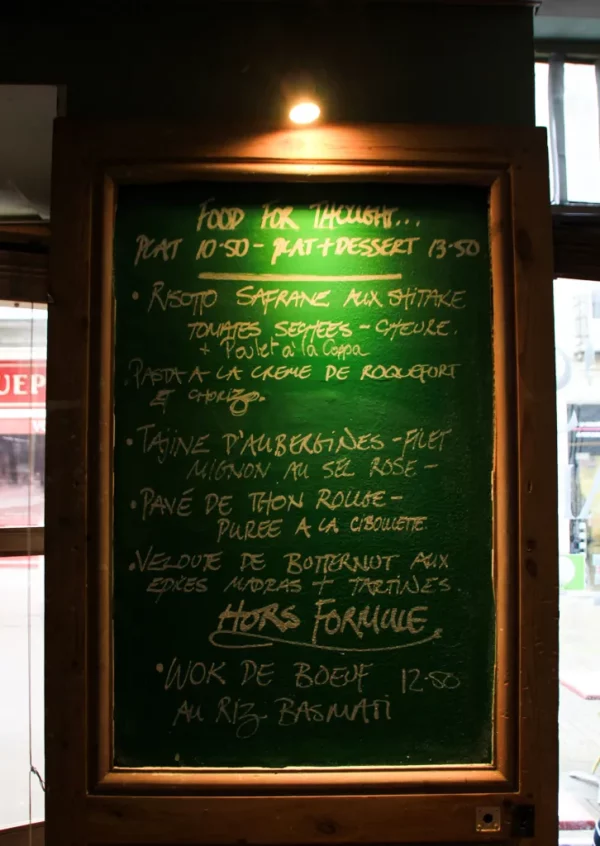 FOOD FOR THOUGHT...
PLAT 10.50 - PLAT + DESSERT 13.50
• RISOTTO SAFRANE AUX SHITAKE
TOMATES SECHEES - CHEVRE.
+ Poulet à la Coppa
• PASTA A LA CREME DE ROQUEFORT
ET CHORIZO.
• TAJINE D'AUBERGINES - FILET
MIGNON AU SEL ROSE -
• PAVÉ DE THON ROUGE -
PUREE A LA CIBOULETTE
• VELOUTE DE BOTTERNUT AUX
EPICES MADRAS + TARTINES.
HORS FORMULE
• WOK DE BOEUF 12.50
AU RIZ BASMATI
UEP